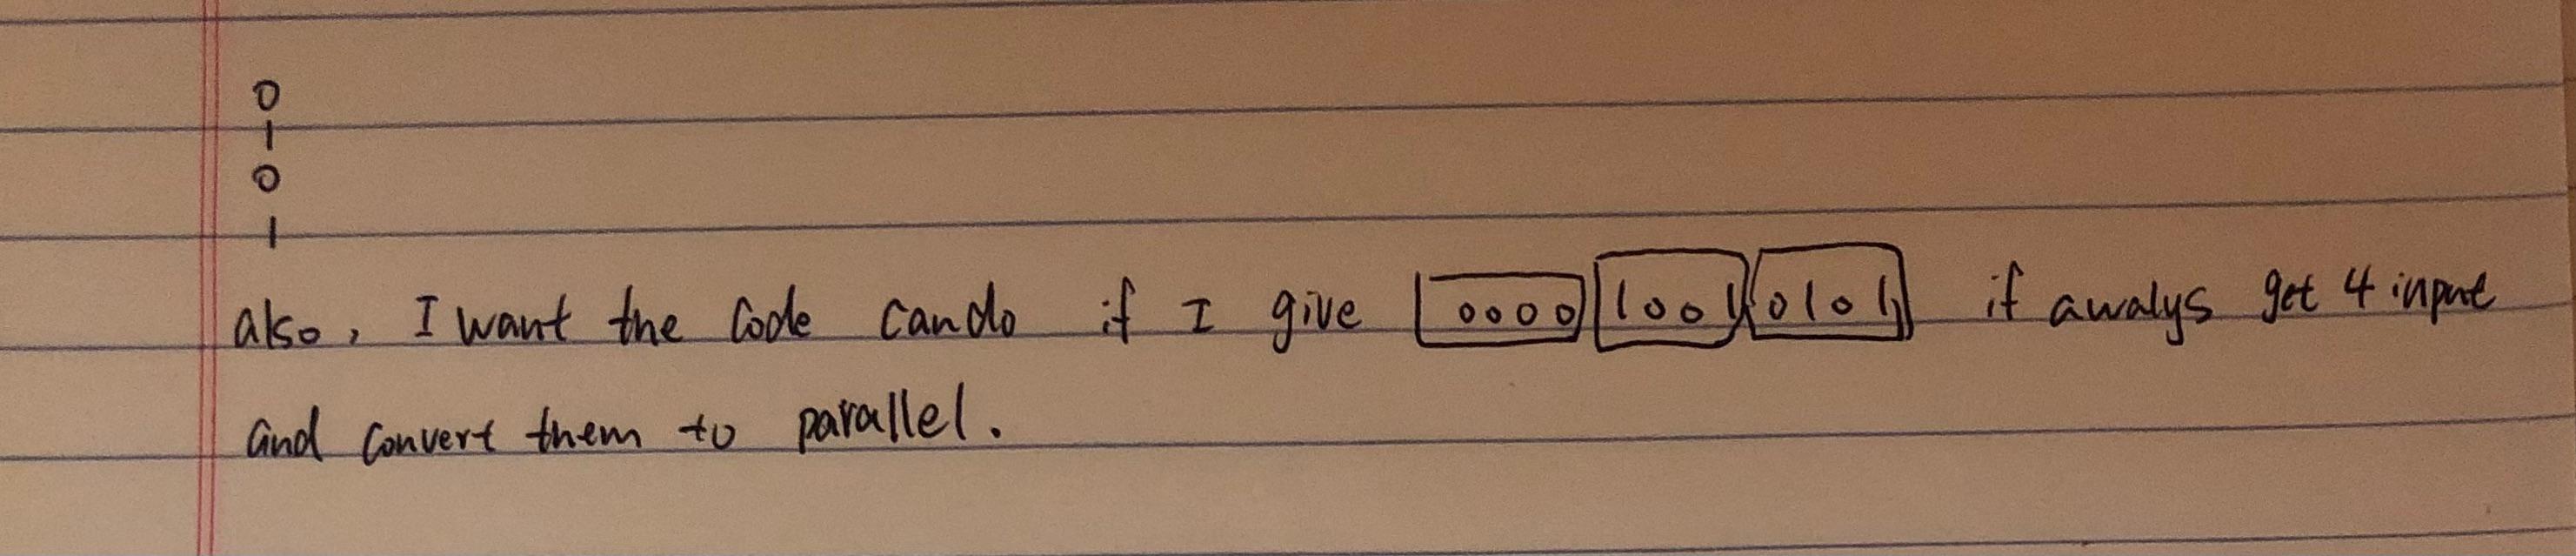 0
1
0
1
also, I want the Code can do if I give 0000 1001 0101 if awalys get 4 input
and convert them to parallel.